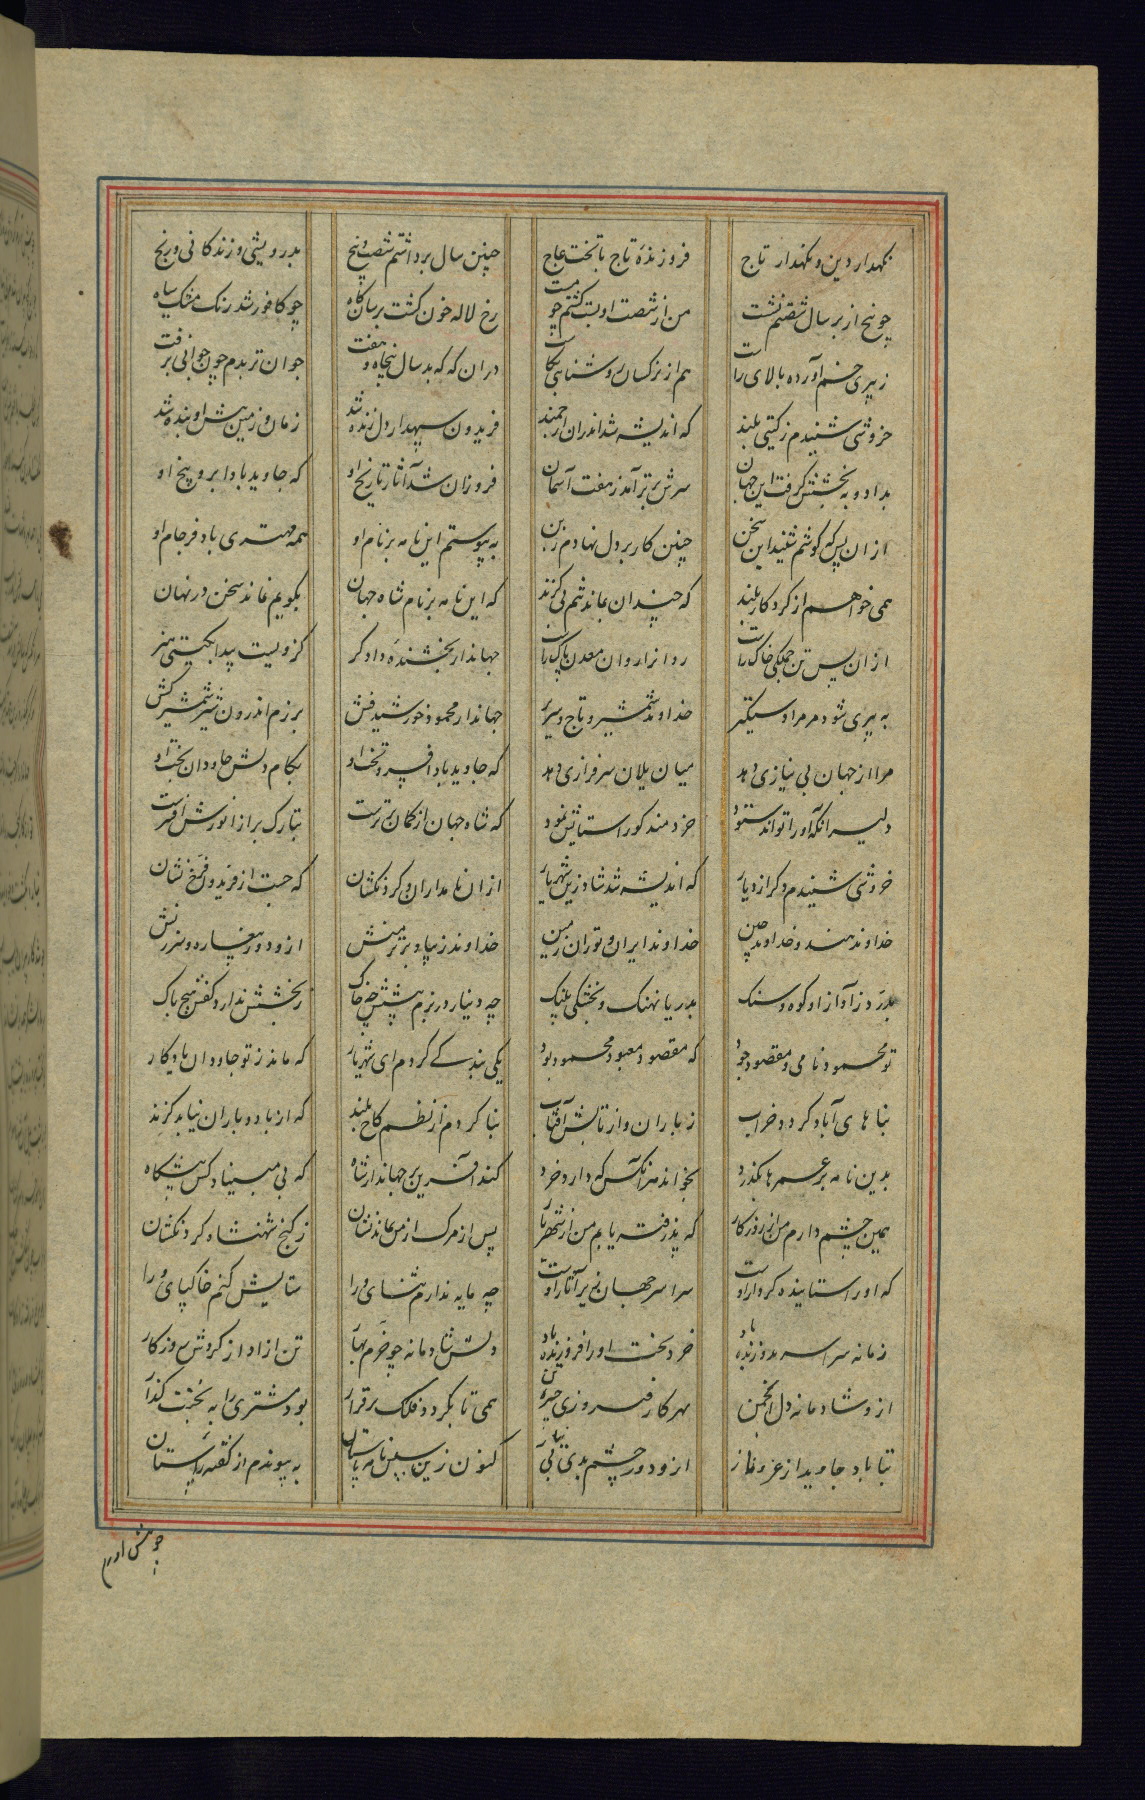 نگهدار دین و نگهدار تاج فروزندهٔ تاج با تخت عاج چنین سال برداشتم شصت و پنج بدرویشی و زندگانی و رنج
چو پنج از بر سال شصتم نشت من از شصت او پست کشتم چو مست رخ لاله خون کشت برسان کاه چو کافور شد رنک مشک سیاه
ز پیری خم آورده بالای راست هم از نرکسان روشنائی بکاست دران که که بد سال پنجاه و هفت جوان تر بدم چون جوانی برفت
خروشی شنیدم ز کیتی بلند که اندیشه شد اندران ارجمند فریدون سپهدار دل زنده شد زمان و زمین پیش او بنده شد
بداد و به بخشش کرفت این جهان سرش برتر آمد ز هفت آسمان فروزان شد آثار تاریخ او که جاوید بادا بر و بیخ او
از ان پس که کوشم شنید این سخن چنین کار بر دل نهادم ز بن به پیوستم این نامه بر نام او همه مهتری باد فرجام او
همی خواهم از کردکار بلند که چندان بماند تنم بی کزند که این نامه بر نام شاه جهان بکویم نماند سخن در نهان
از ان پس تن جملکی خاک راست روانرا روان معدن پاک راست جهاندار بخشندهٔ دادکر کزویست پیدا بکیتی هنر
به پیری شود مر مرا دستکیر خداوند شمشیر و تاج و سریر جهاندار محمود خورشید فش برزم اندرون شیر شمشیر کش
مرا از جهان بی نیازی دهد میان یلان سرفرازی دهد که جاوید باد افسر و تخت او بکام دلش جاودان بخت او
دلیر انکه او را تواند ستود خردمند کو را ستایش نمود که شاه جهان از کمان برترست بتارک بر از نورش افسرست
خروشی شنیدم دکر از دیار که اندیشه شد شاد زین شهریار از ان نامداران و کردنکشان که جست از فریدون فرخ نشان
خداوند هند و خداوند چین خداوند ایران و توران زمین خداوند زیبا و برتر منش ازو دور بیغاره و سرزنش
بدرد ز آواز او کوه و سنک بدریا نهنک و بخشکی پلنک چه دینار در بزم پیشش چه خاک ز بخشش ندارد کفش هیچ باک
تو محمود نامی و مقصود جود که مقصود معبود محمود بود یکی بندکی کردم ای شهریار که ماند ز تو جاودان یادکار
بناهای آباد کردد خراب ز باران و از تابش آفتاب بنا کردم از نظم کاخ بلند که از باد و باران نیابد کزند
بدین نامه بر عمرها بکذرد بخواند هر انکس که دارد خرد کند آفرین بر جهاندار شاه که بی او مبیناد کس پیشکاه
همین چشم دارم من از روزکار که پذرفته یابم من از شهریار پس از مرک از من بماند نشان ز کنج شهنشاه کردنکشان
که او را ستاینده کردار اوست سراسر جهان زیر آثار اوست چه مایه ندارم ثنای ورا ستایش کنم خاکپای ورا
زمانه سراسر بدو زنده باد خرد بخت او را فروزنده باد دلش شادمانه چو خرم بهار تن ازاد از کردش روزکار
ازو شادمانه دل انجمن بهر کار فیروزی همی تا بکردد فلک برقرار بود مشتری را به کذار
تنا باد جاوید از عز و ناز ازو دور چشم بدی کنون زین سپس نامه باستان به پیوندم از کفته راستان
چو پیش اورم